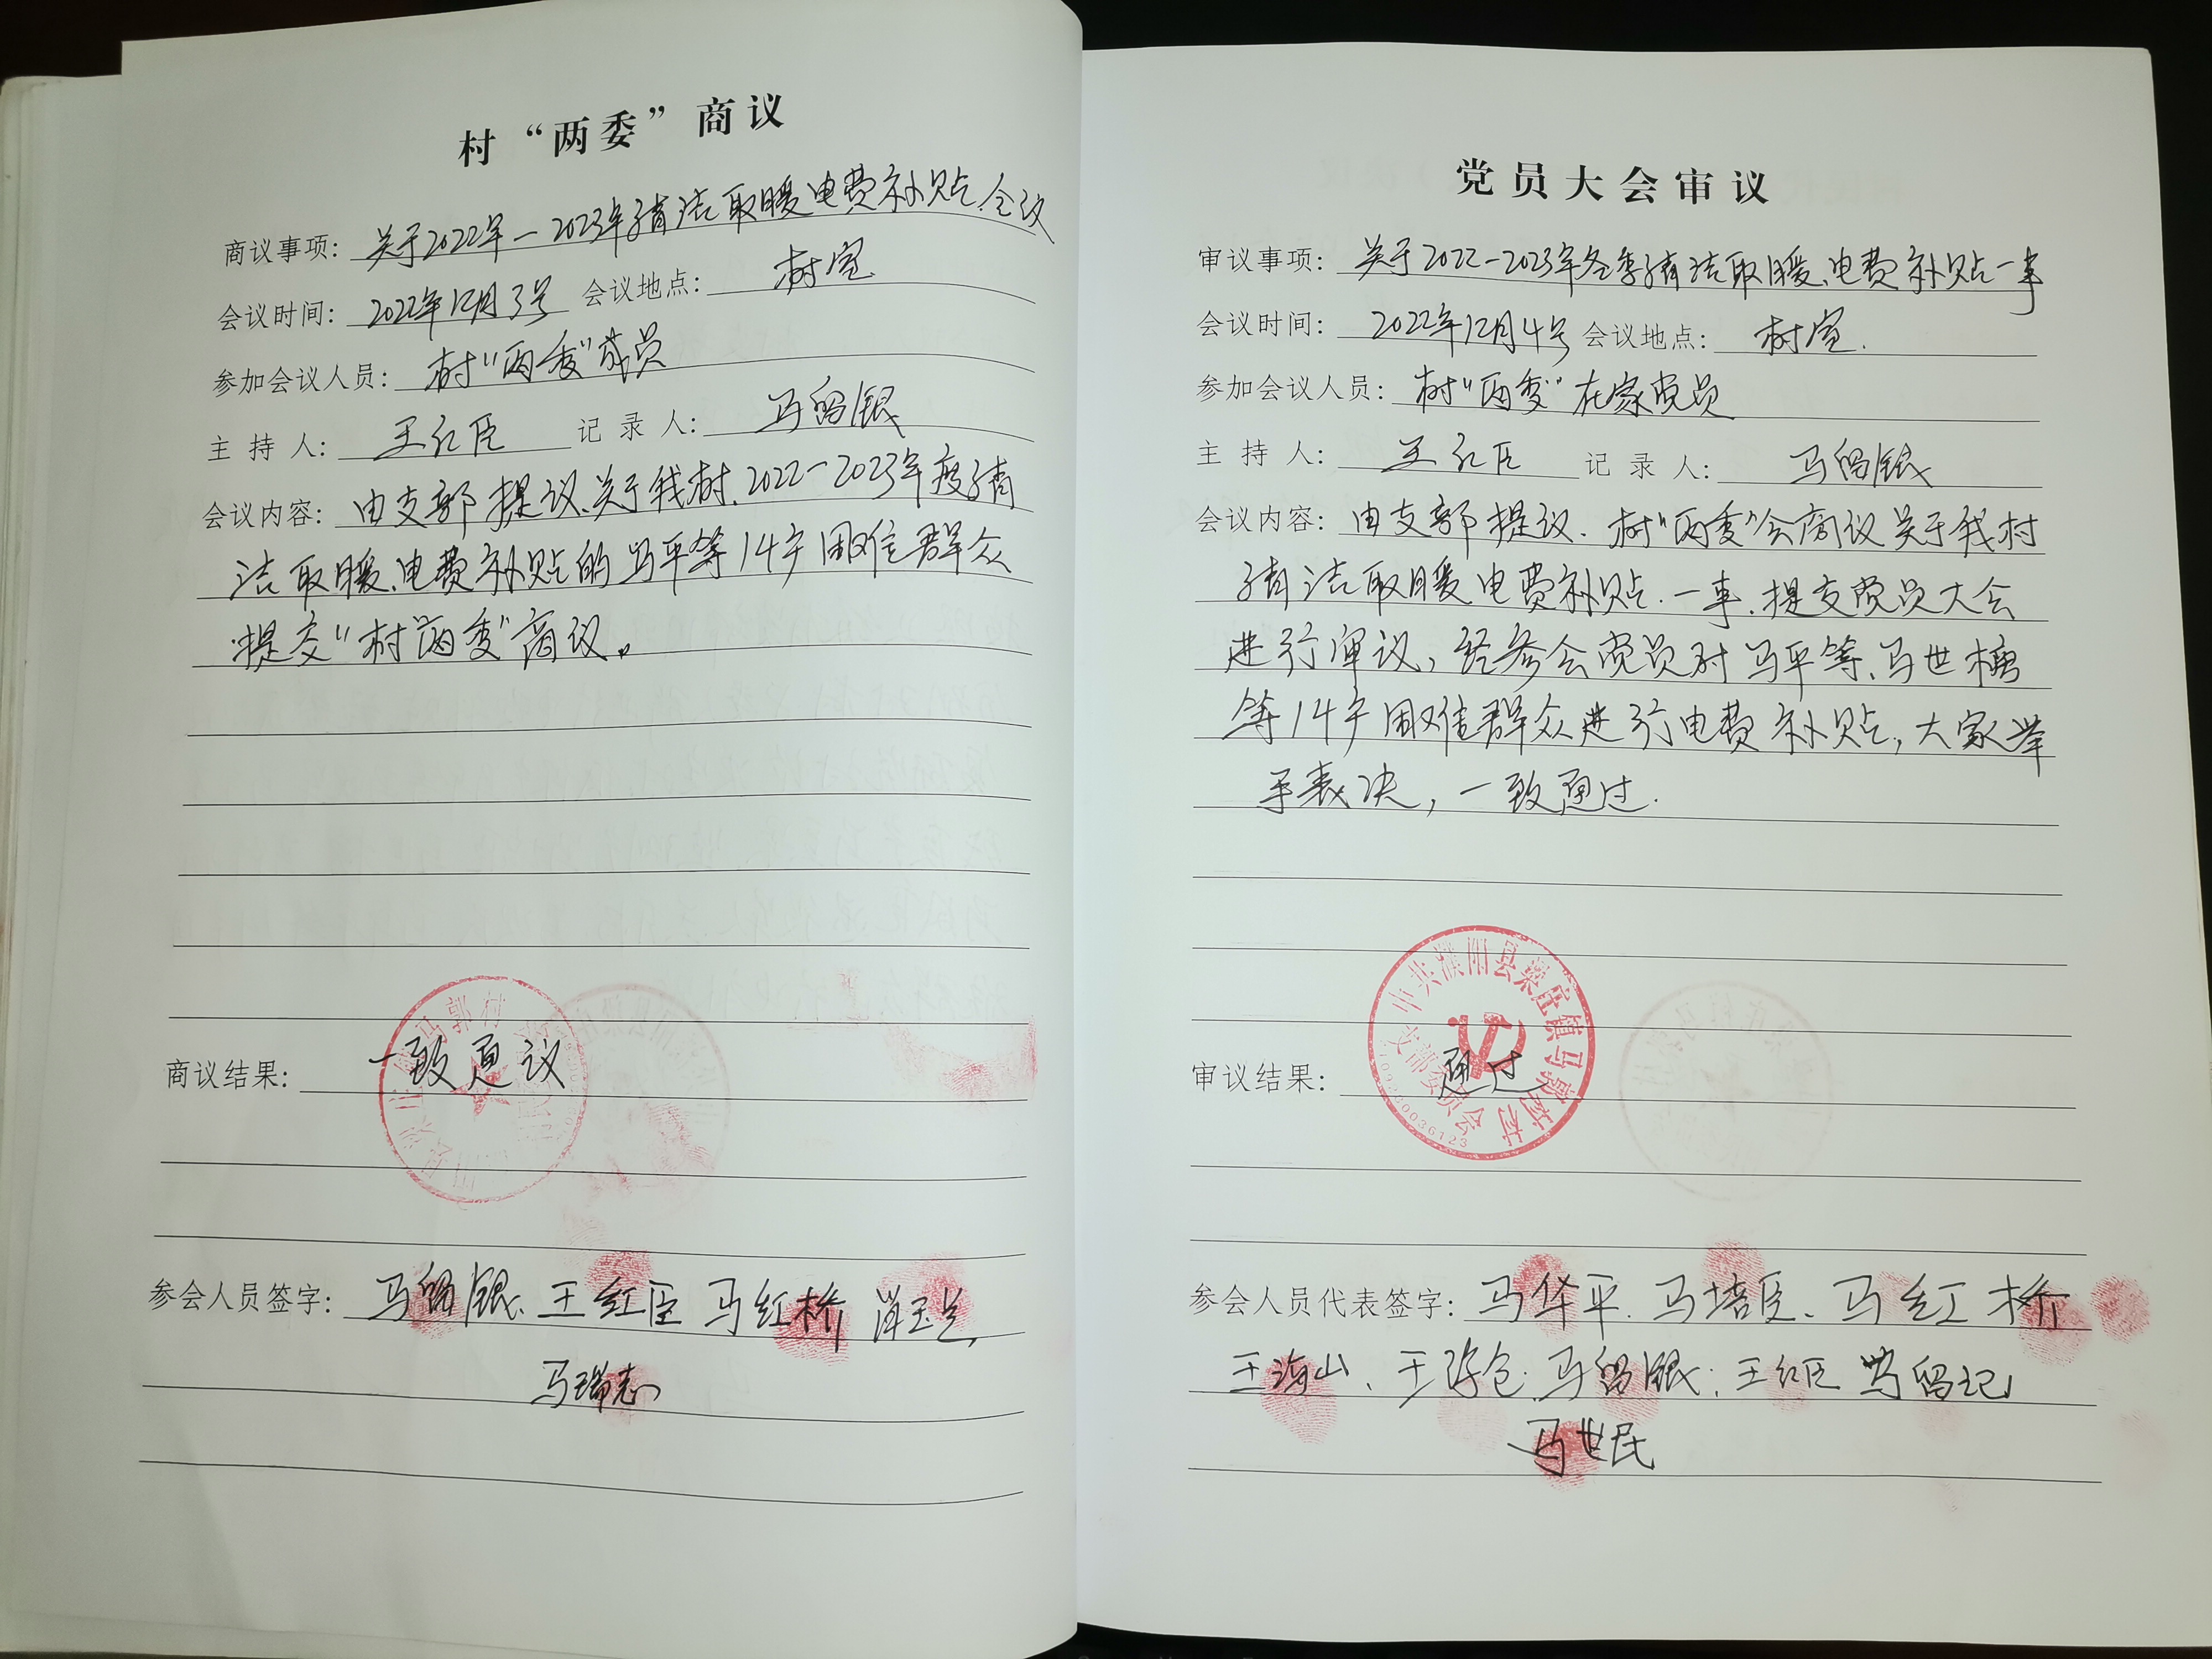 村“两委”商议
商议事项: 关于2022年—2023年清洁取暖、电费补贴会议
会议时间: 2022年12月3号 会议地点: 村室
参加会议人员: 村“两委”成员
主 持 人: 王红臣 记 录 人: 马留银
会议内容: 由支部提议、关于我村、2022—2023年度清
洁取暖、电费补贴的马平等14户困难群众
提交“村“两委”商议。
商议结果: 一致通议
马郭村
参会人员签字: 马留银、王红臣 马红桥
马瑞志
党员大会审议
审议事项: 关于2022—2023年冬季清洁取暖、电费补贴一事
会议时间: 2022年12月4号 会议地点: 村室.
参加会议人员: 村“两委”在家党员
主 持 人: 王红臣 记 录 人: 马留银
会议内容: 由支部提议. 村“两委”会商议关于我村
清洁取暖、电费补贴. 一事. 提交党员大会
进行审议, 经参会党员对马平等、马世
等14户困难群众进行电费补贴, 大家举
手表决, 一致通过.
中共濮阳县梁庄镇马郭村村支部委员会
审议结果: 通过
参会人员代表签字: 马华平. 马培臣、马红桥
王海山、马留银. 王红臣 马留记
马世民